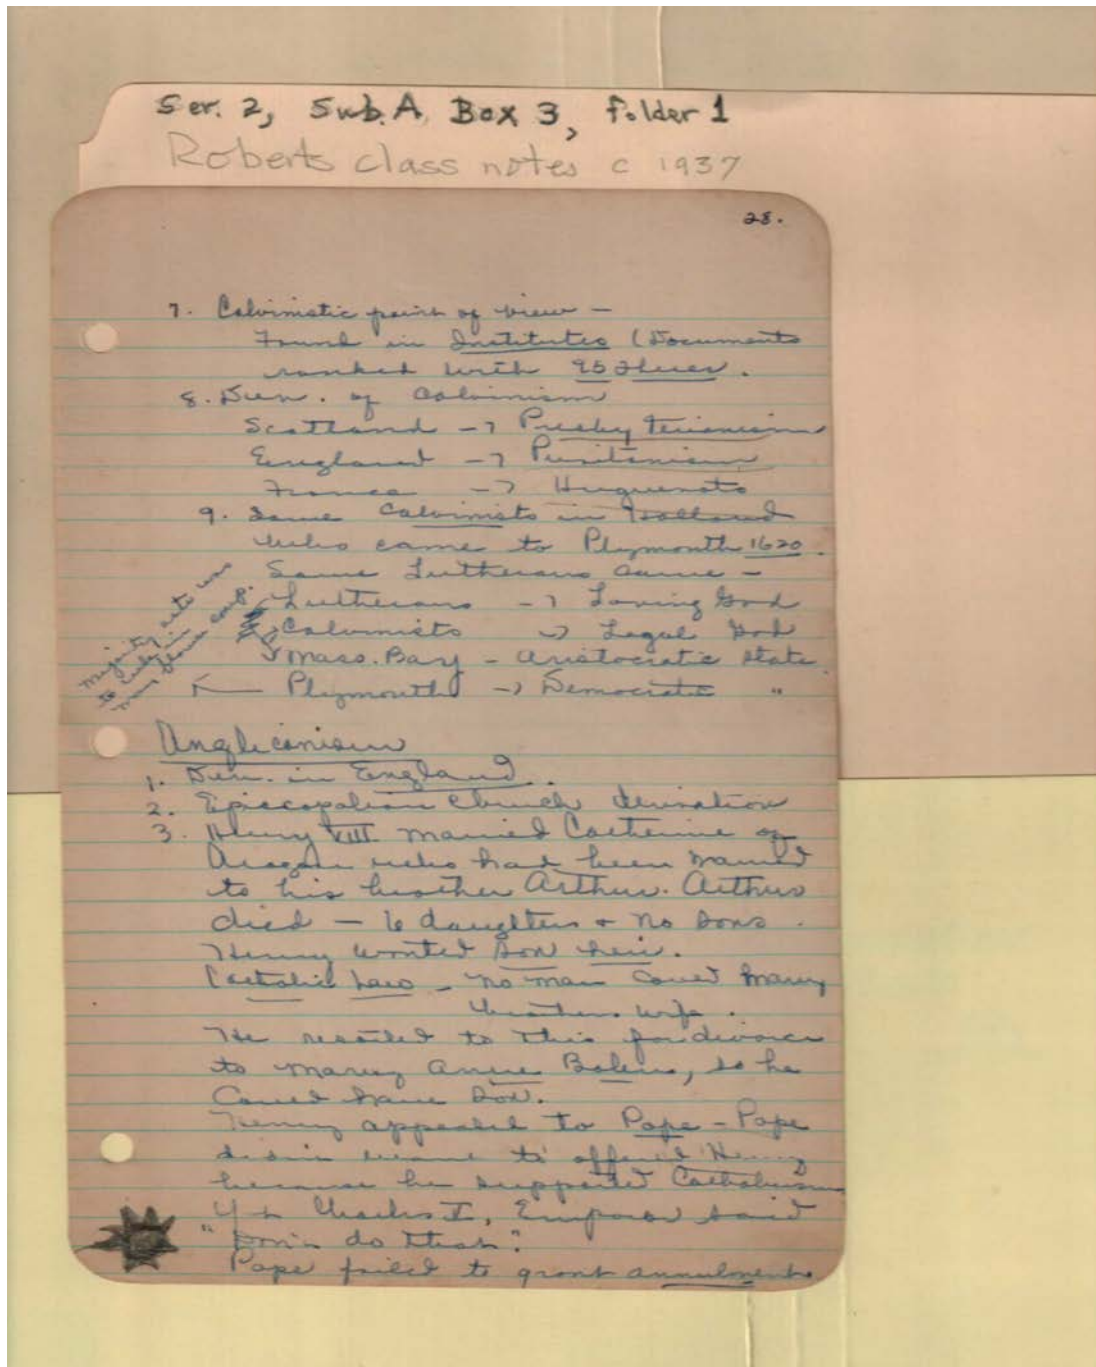 Ser. 2, Sub. A Box 3, Folder 1
Roberts class notes c 1937
28.
7. Calvinistic point of view -
Found in Institutes (Documents
ranked with 95 Theses.
8. Den. of Calvinism
Scotland -> Presbyterianism
England -> Puritanism
France -> Huguenots
9. Some Calvinists in Holland
who came to Plymouth 1620.
Some Lutherans came -
Lutherans -> Loving God
Calvinists -> Legal God
Mass. Bay - Aristocratic State
Plymouth -> Democratic "
Majority acts was
to rule in
Mayflower Comp.
Anglicanism
1. Den. in England.
2. Episcopalian Church derivation
3. Henry VIII married Catherine of
Aragon who had been married
to his brother Arthur. Arthur
died - 6 daughters + no sons.
Henry wanted son heir.
Catholic Law - no man could marry
brothers wife.
He resorted to this for divorce
to marry Anne Boleyn, so he
could have son.
Henry appealed to Pope - Pope
didn't want to offend Henry
because he supported Catholicism
Charles V, Emperor said
"Don't do that."
Pope failed to grant annulment